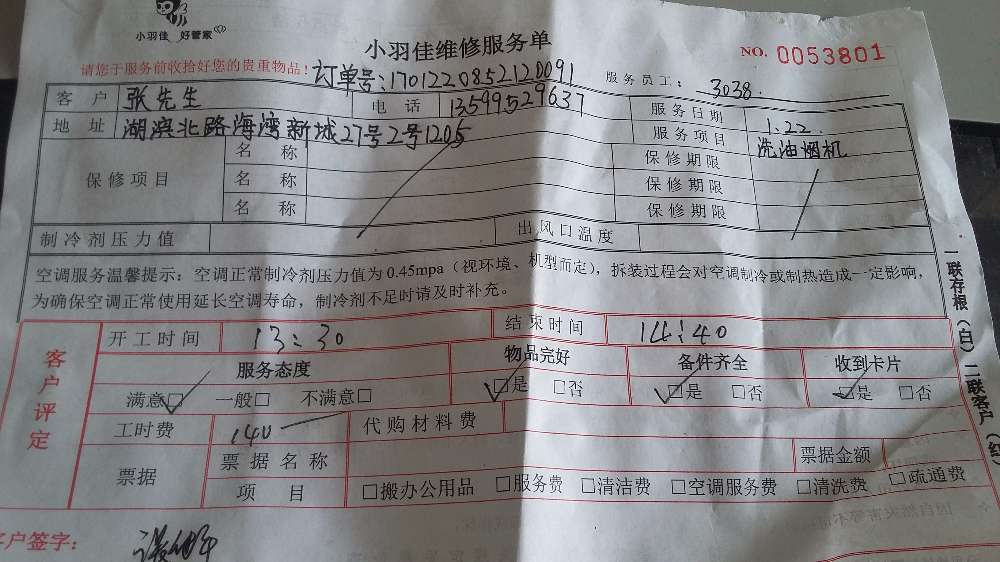 小羽佳 好管家
小羽佳维修服务单
NO. 0053801
请您于服务前收拾好您的贵重物品!
订单号:170122085212009​1
服务员工: 3038.
客户 张先生 电话 13599529637 服务日期 1.22.
地址 湖滨北路海湾新城27号2号1205 服务项目 洗油烟机
保修项目 名称 保修期限
名称 保修期限
名称 保修期限
制冷剂压力值 出风口温度
空调服务温馨提示:空调正常制冷剂压力值为0.45mpa(视环境、机型而定),拆装过程会对空调制冷或制热造成一定影响,
为确保空调正常使用延长空调寿命,制冷剂不足时请及时补充。
客户评定
开工时间 13:30 结束时间 14:40
服务态度 物品完好 备件齐全 收到卡片
满意□ 一般□ 不满意□ □是 □否 □是 □否 □是 □否
工时费 140 代购材料费
票据 票据名称 票据金额
项目 □搬办公用品 □服务费 □清洁费 □空调服务费 □清洗费 □疏通费
客户签字:
一联存根(白)二联客户(红